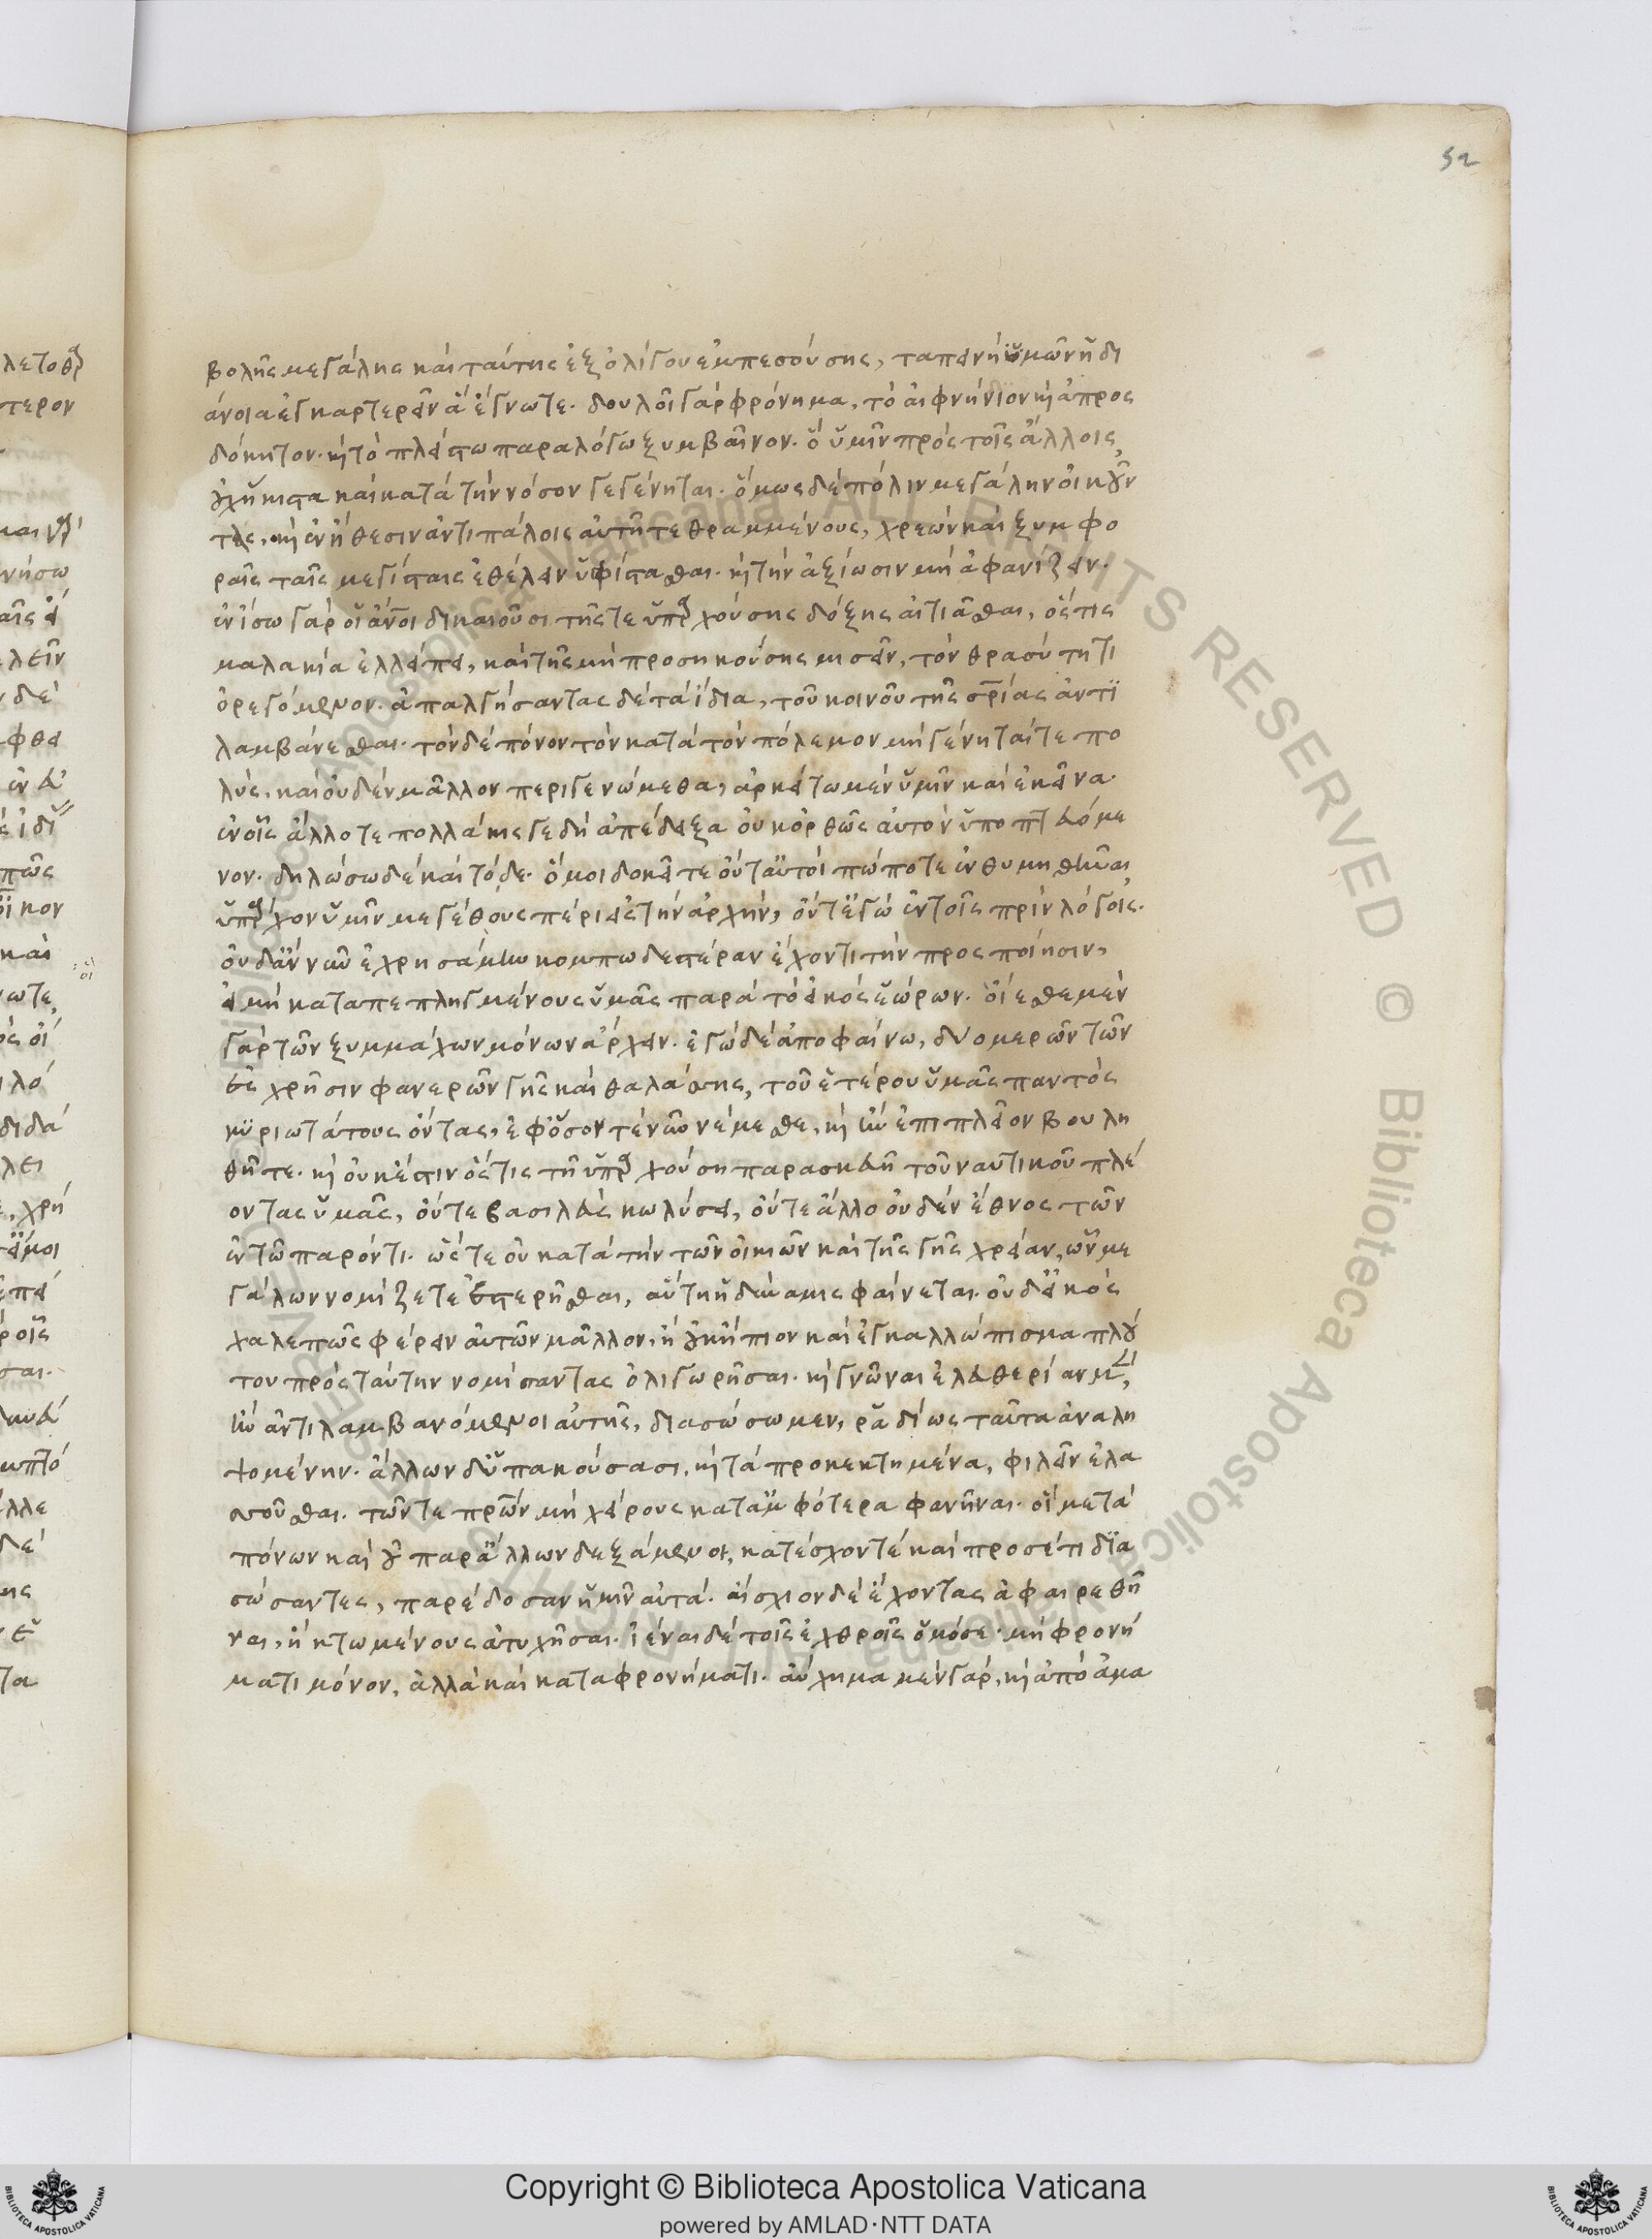 52
βολῆς μεγάλης καὶ ταύτης ἐξ ὀλίγου ἐμπεσούσης, ταπεινὴ ὑμῶν ἡ δι
άνοια ἐγκαρτερεῖν ἃ ἔγνωτε. δουλοῖ γὰρ φρόνημα, τὸ αἰφνήδιον κ(αὶ) ἀπροσ
δόκητον. κ(αὶ) τὸ πλείστω παραλόγω ξυμβαῖνον. ὃ ὑμῖν πρὸς τοῖς ἄλλοις,
οὐχ ἥκιστα καὶ κατὰ τὴν νόσον γεγένηται. ὅμως δὲ πόλιν μεγάλην οἰκοῦν
τας, κ(αὶ) ἐν ἤθεσιν ἀντιπάλοις αὐτῆ τεθραμμένους, χρεὼν καὶ ξυμφο
ραῖς ταῖς μεγίσταις ἐθέλειν ὑφίστασθαι. κ(αὶ) τὴν ἀξίωσιν μὴ ἀφανίζειν.
ἐν ἴσω γὰρ οἱ ἄνοι δικαιοῦσι τῆς τε ὑπαρχούσης δόξης αἰτιᾶσθαι, ὅστις
μαλακία ἐλλείπει, καὶ τῆς μὴ προσηκούσης μισεῖν, τὸν θρασύτητι
ὀρεγόμενον. ἀπαλγήσαντας δὲ τὰ ἴδια, τοῦ κοινοῦ τῆς σρίας ἀντι
λαμβάνεσθαι. τὸν δὲ πόνον τὸν κατὰ τὸν πόλεμον μὴ γένηταί τε πο
λὺς, καὶ οὐδὲν μᾶλλον περιγενώμεθα, ἀρκείτω μὲν ὑμῖν καὶ ἐκεῖνα.
ἐν οἷς ἄλλοτε πολλάκις γε δὴ ἀπέδειξα οὐκ ὀρθῶς αὐτὸν ὑποπτευόμε
νον. δηλώσω δὲ καὶ τόδε. ὅ μοι δοκεῖτε οὔτ αὐτοὶ πώποτε ἐνθυμηθῆναι,
ὑπάρχον ὑμῖν μεγέθους πέρι ἐς τὴν ἀρχὴν, οὔτ ἐγὼ ἐν τοῖς πρὶν λόγοις.
οὐδ ἂν νῦν ἐχρησάμην κομπωδεστέραν ἔχοντι τὴν προσποίησιν,
εἰ μὴ καταπεπληγμένους ὑμᾶς παρὰ τὸ εἰκὸς ἑώρων. οἴεσθε μὲν
γὰρ τῶν ξυμμάχων μόνων ἄρχειν. ἐγὼ δὲ ἀποφαίνω, δύο μερῶν τῶν
ἐς χρῆσιν φανερῶν γῆς καὶ θαλάσσης, τοῦ ἑτέρου ὑμᾶς παντὸς
κυριωτάτους ὄντας, ἐφ ὅσον τε νῦν νέμεσθε, κ(αὶ) ἢν ἐπιπλεῖον βουλη
θῆτε. κ(αὶ) οὐκ ἔστιν ὅστις τῆ ὑπαρχούση παρασκευῆ τοῦ ναυτικοῦ πλέ
οντας ὑμᾶς, οὔτε βασιλεὺς κωλύσει, οὔτε ἄλλο οὐδὲν ἔθνος τῶν
ἐν τῶ παρόντι. ὥστε οὐ κατὰ τὴν τῶν οἰκιῶν καὶ τῆς γῆς χρείαν, ὧν με
γάλων νομίζετε ἐστερῆσθαι, αὕτη ἡ δύναμις φαίνεται. οὐδ εἰκὸς
χαλεπῶς φέρειν αὐτῶν μᾶλλον, ἢ οὐ κηπίον καὶ ἐγκαλλώπισμα πλού
του πρὸς ταύτην νομίσαντας ὀλιγωρῆσαι. κ(αὶ) γνῶναι ἐλευθερίαν μὲν,
ἢν ἀντιλαμβανόμενοι αὐτῆς, διασώσωμεν, ῥαδίως ταῦτα ἀναλη
ψομένην. ἄλλων δ ὑπακούσασι, κ(αὶ) τὰ προκεκτημένα, φιλεῖν ἐλα
σσοῦσθαι. τῶν τε πρων μὴ χείρους κατ ἀμφότερα φανῆναι. οἳ μετὰ
πόνων καὶ οὐ παρ ἄλλων δεξάμενοι, κατέσχον τέ καὶ προσέτι δια
σώσαντες, παρέδοσαν ἡμῖν αὐτά. αἴσχιον δὲ ἔχοντας ἀφαιρεθῆ
ναι, ἢ κτωμένους ἀτυχῆσαι. ἰέναι δὲ τοῖς ἐχθροῖς ὁμόσε. μὴ φρονή
ματι μόνον, ἀλλὰ καὶ καταφρονήματι. αὔχημα μὲν γὰρ, κ(αὶ) ἀπὸ ἀμα
Copyright © Biblioteca Apostolica Vaticana
powered by AMLAD·NTT DATA